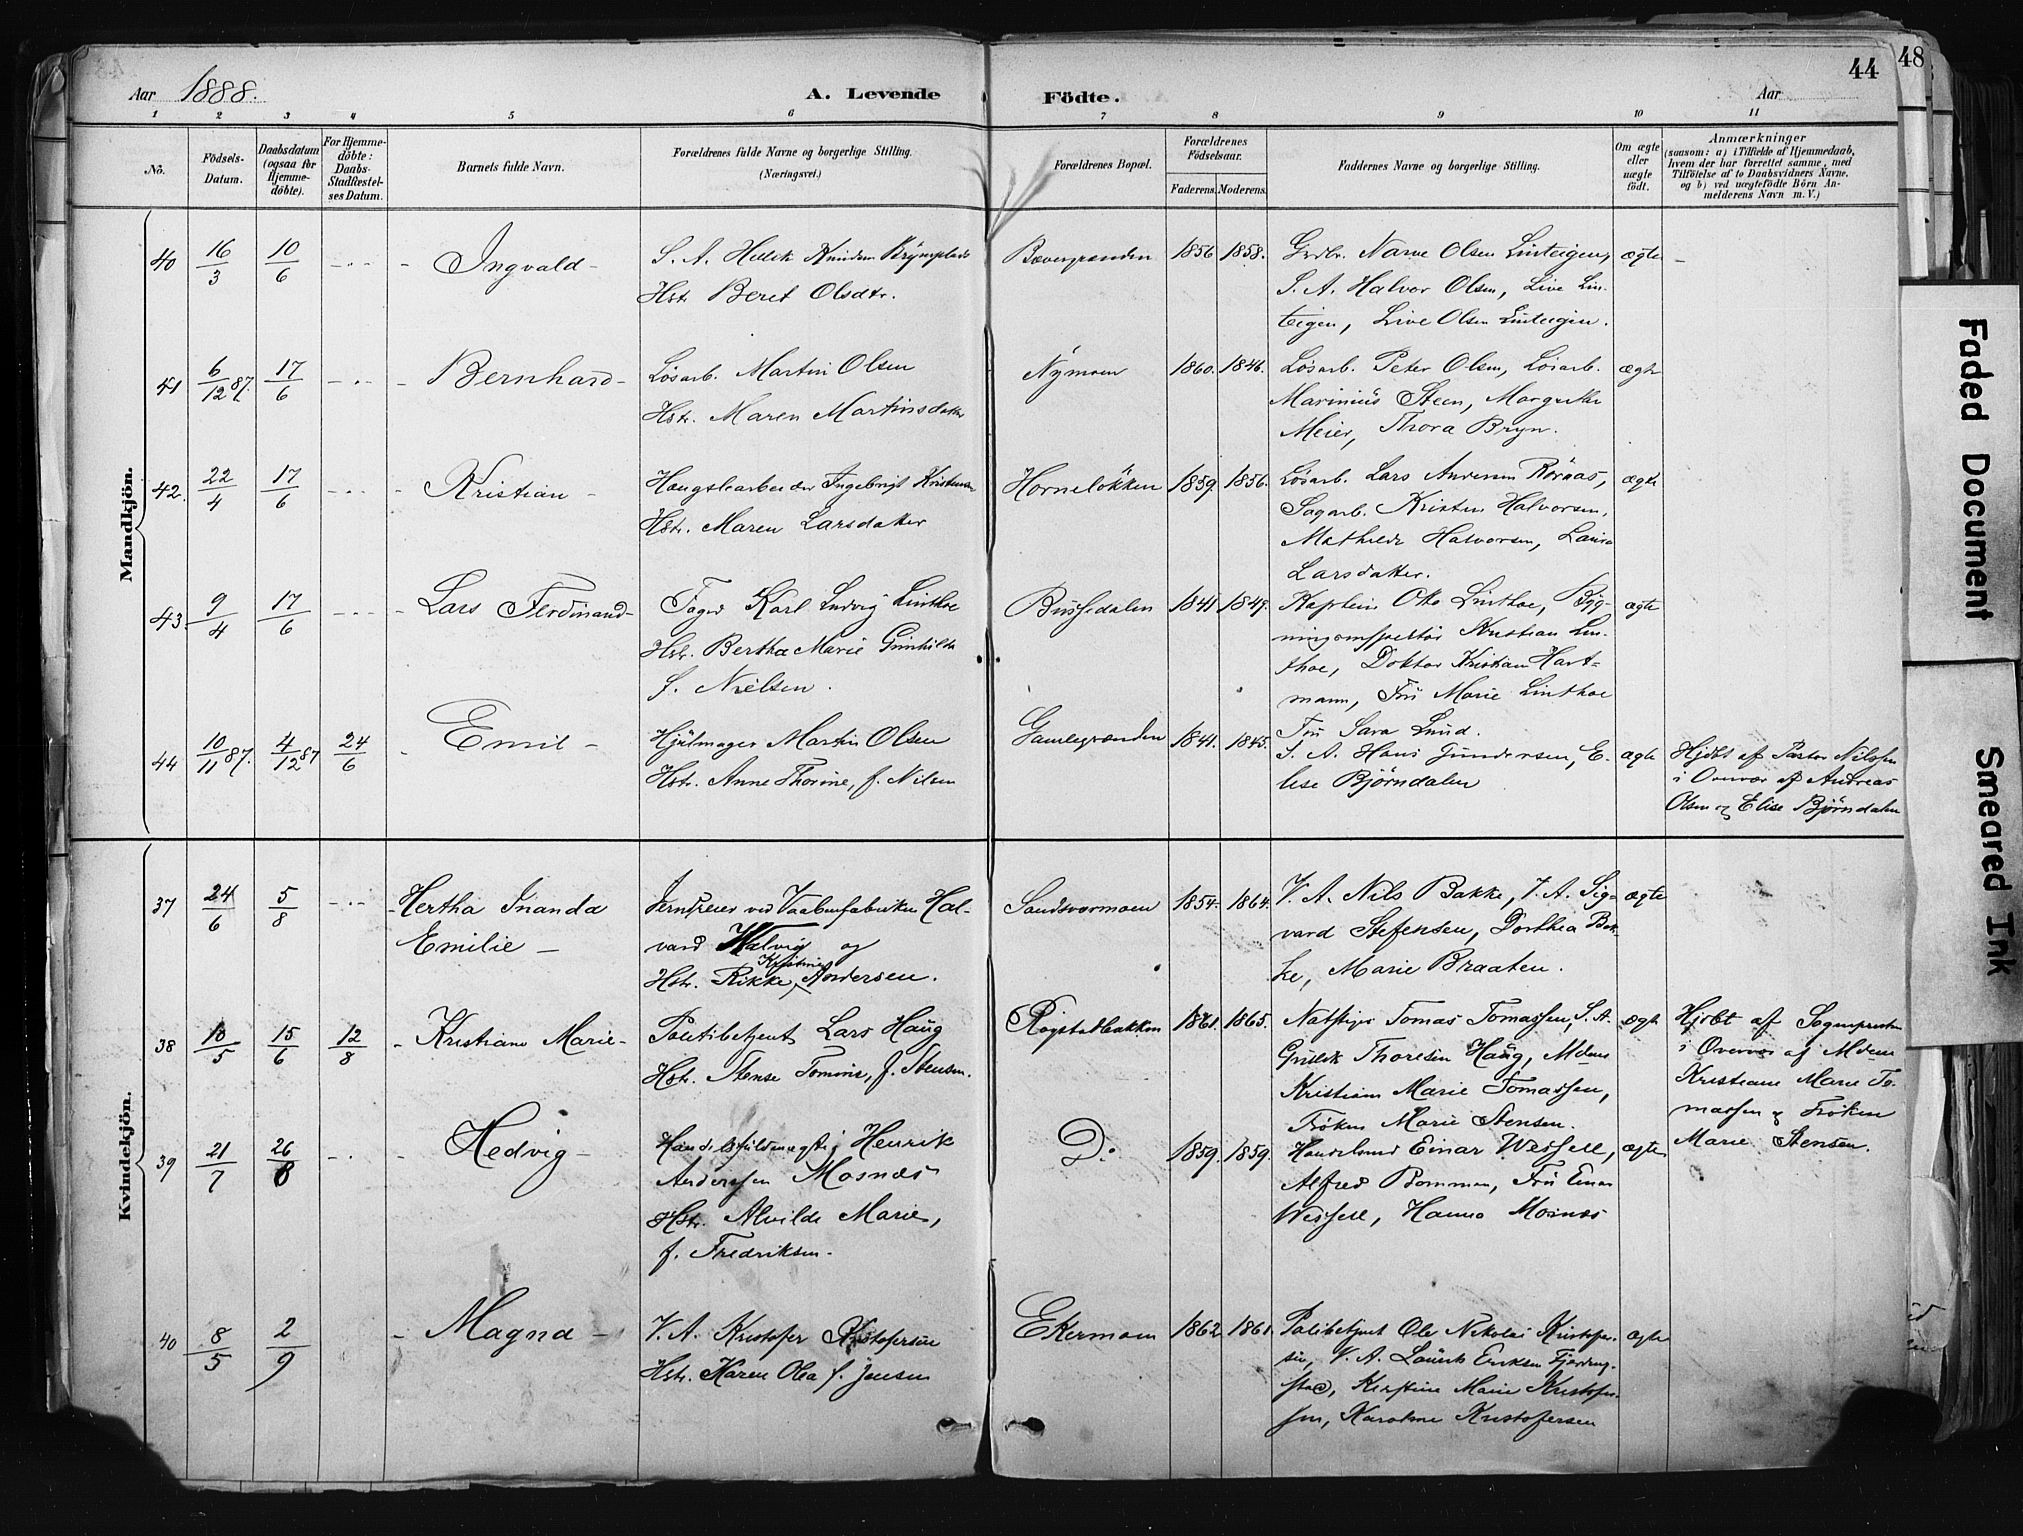 44
48
Aar 1888.
A. Levende Födte.
Aar
1 2 3 4 5 6 7 8 9 10 11
No.
Födsels-
Datum.
Daabsdatum
(ogsaa for
Hjemme-
döbte).
For Hjemme-
döbte:
Daabs-
Stadfæstel-
ses Datum.
Barnets fulde Navn.
Forældrenes fulde Navne og borgerlige Stilling.
(Næringsvei.)
Forældrenes Bopæl.
Forældrenes
Födselsaar.
Faderens. Moderens.
Faddernes Navne og borgerlige Stilling.
Om ægte
eller
uægte
födt.
Anmærkninger
(saasom: a) i Tilfælde af Hjemmedaab,
hvem der har forrettet samme, med
Tilföielse af to Daabsvidners Navne,
og b) ved uægtefödte Börn An-
melderens Navn m.V.)
Mandkjön.
40 16/3 10/6 Ingvald
S. A.
Hst. Beret Olsdtr.
Bævergrænden 1856 1858.
Grdbr. Narve Olsen Linteigen,
S. A. Halvor Olsen, Live Lin-
teigen, Live Olsen Linteigen.
ægte
41 6/12 87. 17/6 Bernhard
Løsarb. Martin Olsen
Hst. Maren Martinsdatter
Nymoen 1860. 1846.
Løsarb. Peter Olsen, Løsarb.
Marinius Steen, Margrethe
Meier, Thora Bryn.
ægte
42. 22/4 17/6 Kristian
Haugslearbeider Ingebrigt Kristensen
Hst. Maren Larsdatter
Horneløkken 1859. 1856.
Løsarb. Lars Andersen Röraas,
Sagarb. Kristen Halvorsen,
Mathilde Halvorsen, Laura
Larsdatter.
ægte
43. 9/4 17/6 Lars Ferdinand
Foged Karl Ludvig Linthoe
Hst. Bertha Marie Gunhilda
f. Nielsen.
1841 1849.
Kaptein Otto Linthoe, Byg-
ningsinspektör Kristian Lin-
thoe, Doktor Kristian Hart-
mann, Fru Marie Linthoe
Fru Sara Lund.
ægte
44 10/11 87. 4/12 87 24/6 Emil
Hjulmager Martin Olsen
Hst. Anne Thorine, f. Nilsen
Gamlegrænden 1841. 1845.
S. A. Hans Gundersen, E-
lise Björndalen
ægte
Hjdbt af Pastor Nilssen
i Overvær af Andreas
Olsen og Elise Björndalen
Kvindekjön.
37 24/6 5/8 Hertha Inanda
Emilie
Jerndreier ved Vaabenfabriken Hal-
vard Halvig og
Hst. Rikke Kristine Andersen.
Sandsværmoen 1854. 1864.
V. A. Nils Bakke, V. A. Sig-
vard Stefensen, Dorthea Bak-
ke, Marie Braaten.
ægte
38 18/5 15/6 12/8 Kristiane Marie
Politibetjent Lars Haug
Hst. Stense Tomine, f. Stensen.
1861. 1865.
Tomas Tomassen, S. A.
Thoresen Haug, Mdme
Kristiane Marie Tomassen,
Fröken Marie Stensen.
ægte
Hjdbt af Sognepresten
i Overvær af Mdme
Kristiane Marie To-
massen og Fröken
Marie Stensen.
39 21/7 26/8 Hedvig
Handelsfuldmægtig Henrik
Anderssen Mosnæs
Hst. Alvilde Marie,
f. Fredriksen.
Do. 1859. 1859.
Handelsmd Einar Wessell,
Alfred Bommen, Fru Emma
Wessell, Hanna Mosnæs
ægte
40 8/5 2/9 Magna
V. A. Kristofer Kristofersen
Hst. Karen Olea f. Jensen
Ekermoen 1862 1861
Politibetjent Ole Nikolai Kristofer-
sen, V. A. Laurits Eriksen Fjerding-
stad, Kirstine Marie Kristofer-
sen, Karoline Kristofersen
ægte
Faded Document
Smeared Ink